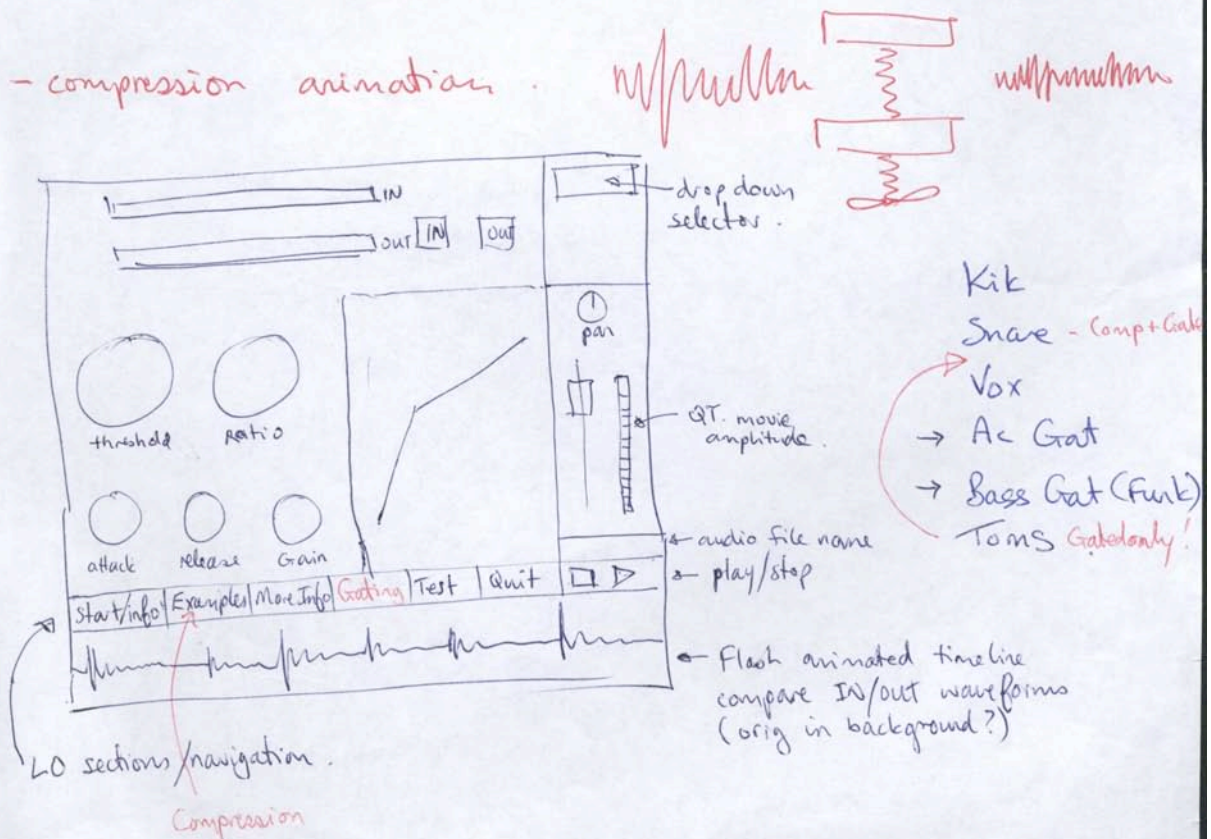 - compression animation .
IN
OUT
IN
OUT
drop down
selector .
threshold
Ratio
attack
release
Gain
pan
QT. movie
amplitude .
audio file name
play/stop
Start/info
Examples
More Info
Gating
Test
Quit
Flash animated timeline
compare IN/OUT waveforms
(orig in background?)
LO sections/navigation .
Compression
Kik
Snare - Comp + Gate
Vox
→ Ac Gat
→ Bass Gat (Funk)
Toms Gated only!